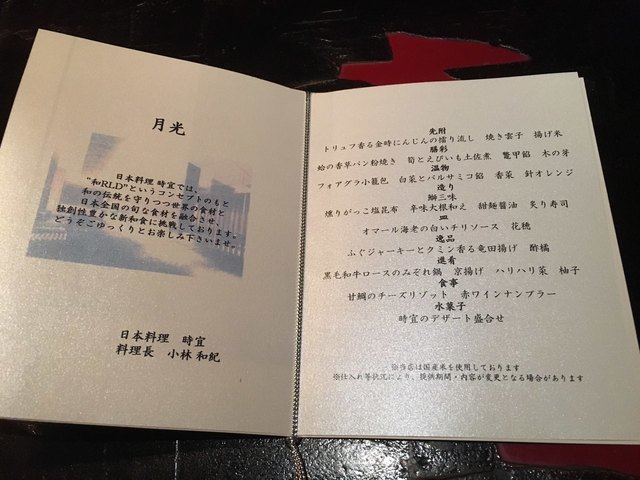 月光
日本料理 時宜では、
"和RLD"というコンセプトのもと
和の伝統を守りつつ世界の食材と
日本全国の旬な食材を融合させ、
独創性豊かな新和食に挑戦しております。
どうぞごゆっくりとお楽しみ下さいませ。
日本料理 時宜
料理長 小林 和紀
先附
トリュフ香る金時にんじんの擂り流し 焼き雲子 揚げ米
膳彩
蛤の香草パン粉焼き 筍とえびいも土佐煮 鼈甲餡 木の芽
温物
フォアグラ小籠包 白菜とバルサミコ餡 香菜 針オレンジ
造り
鰤三味
燻りがっこ塩昆布 辛味大根和え 甜麺醤油 炙り寿司
皿
オマール海老の白いチリソース 花穂
逸品
ふぐジャーキーとクミン香る竜田揚げ 酢橘
進肴
黒毛和牛ロースのみぞれ鍋 京揚げ ハリハリ菜 柚子
食事
甘鯛のチーズリゾット 赤ワインナンプラー
水菓子
時宜のデザート盛合せ
※当店は国産米を使用しております
※仕入れ等状況により、提供期間・内容が変更となる場合があります